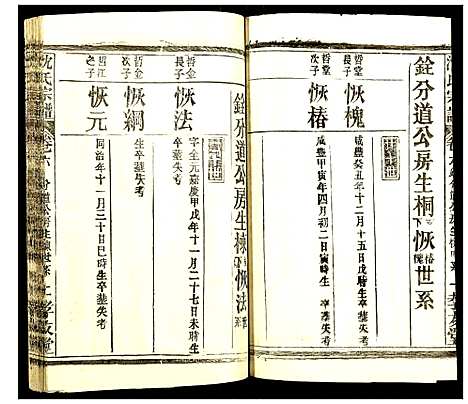 銓分道公房生桐下恢椿恢槐世系
哲堂長子
恢槐
咸豐癸丑年十二月十五戌時生
卒墓失考
哲堂次子
恢椿
咸豐甲寅年四月初二日寅時生
卒墓失考
銓分道公房生棟下恢法世系
哲金長子
恢法
字全元嘉慶甲戌年十一月二十七日未時生
卒墓失考
哲金次子
恢綱
生卒墓失考
哲江之子
恢元
同治年十一月二十日巳時生
卒墓失考
沈氏宗譜
孝友堂